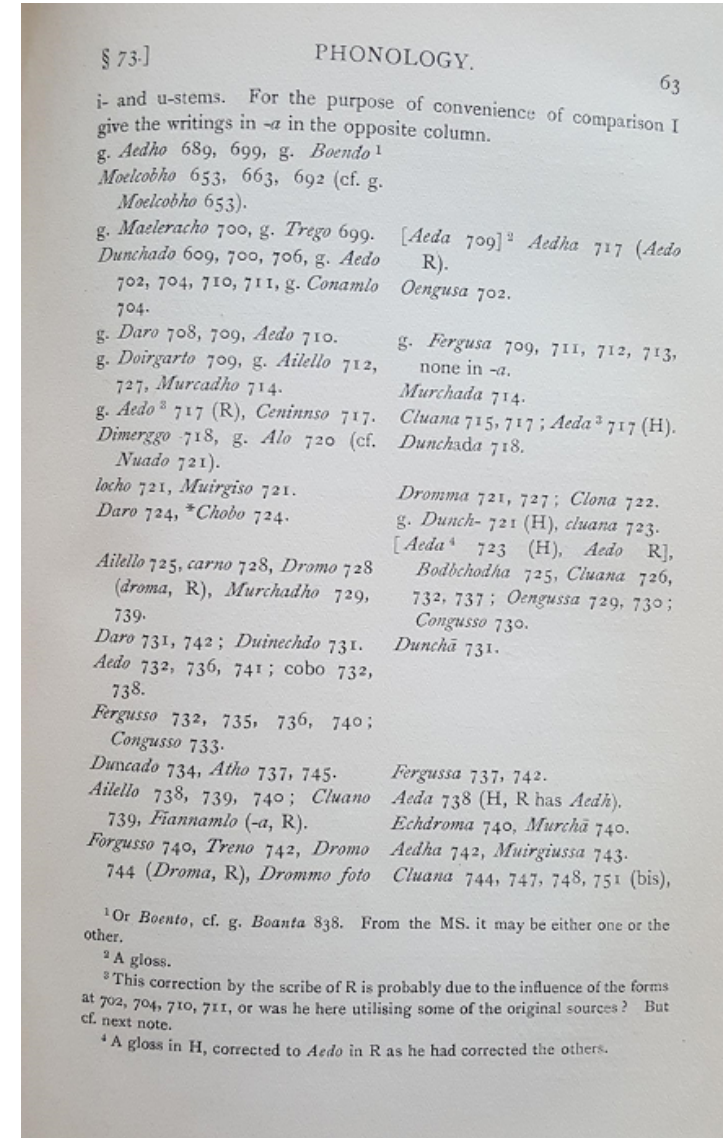 § 73.] PHONOLOGY. 63
i- and u-stems. For the purpose of convenience of comparison I
give the writings in -a in the opposite column.
g. Aedho 689, 699, g. Boendo ¹
Moelcobho 653, 663, 692 (cf. g.
Moelcobho 653).
g. Maeleracho 700, g. Trego 699.
Dunchado 609, 700, 706, g. Aedo
702, 704, 710, 711, g. Conamlo
704.
g. Daro 708, 709, Aedo 710.
g. Doirgarto 709, g. Ailello 712,
727, Murcadho 714.
g. Aedo ³ 717 (R), Ceninnso 717.
Dimerggo 718, g. Alo 720 (cf.
Nuado 721).
locho 721, Muirgiso 721.
Daro 724, *Chobo 724.
Ailello 725, carno 728, Dromo 728
(droma, R), Murchadho 729,
739.
Daro 731, 742 ; Duinechdo 731.
Aedo 732, 736, 741 ; cobo 732,
738.
Fergusso 732, 735, 736, 740 ;
Congusso 733.
Duncado 734, Atho 737, 745.
Ailello 738, 739, 740 ; Cluano
739, Fiannamlo (-a, R).
Forgusso 740, Treno 742, Dromo
744 (Droma, R), Drommo foto
[Aeda 709] ² Aedha 717 (Aedo
R).
Oengusa 702.
g. Fergusa 709, 711, 712, 713,
none in -a.
Murchada 714.
Cluana 715, 717 ; Aeda ³ 717 (H).
Dunchada 718.
Dromma 721, 727 ; Clona 722.
g. Dunch- 721 (H), cluana 723.
[Aeda ⁴ 723 (H), Aedo R],
Bodbchodha 725, Cluana 726,
732, 737 ; Oengussa 729, 730 ;
Congusso 730.
Dunchā 731.
Fergussa 737, 742.
Aeda 738 (H, R has Aedh).
Echdroma 740, Murchā 740.
Aedha 742, Muirgiussa 743.
Cluana 744, 747, 748, 751 (bis),
¹ Or Boento, cf. g. Boanta 838. From the MS. it may be either one or the
other.
² A gloss.
³ This correction by the scribe of R is probably due to the influence of the forms
at 702, 704, 710, 711, or was he here utilising some of the original sources ? But
cf. next note.
⁴ A gloss in H, corrected to Aedo in R as he had corrected the others.